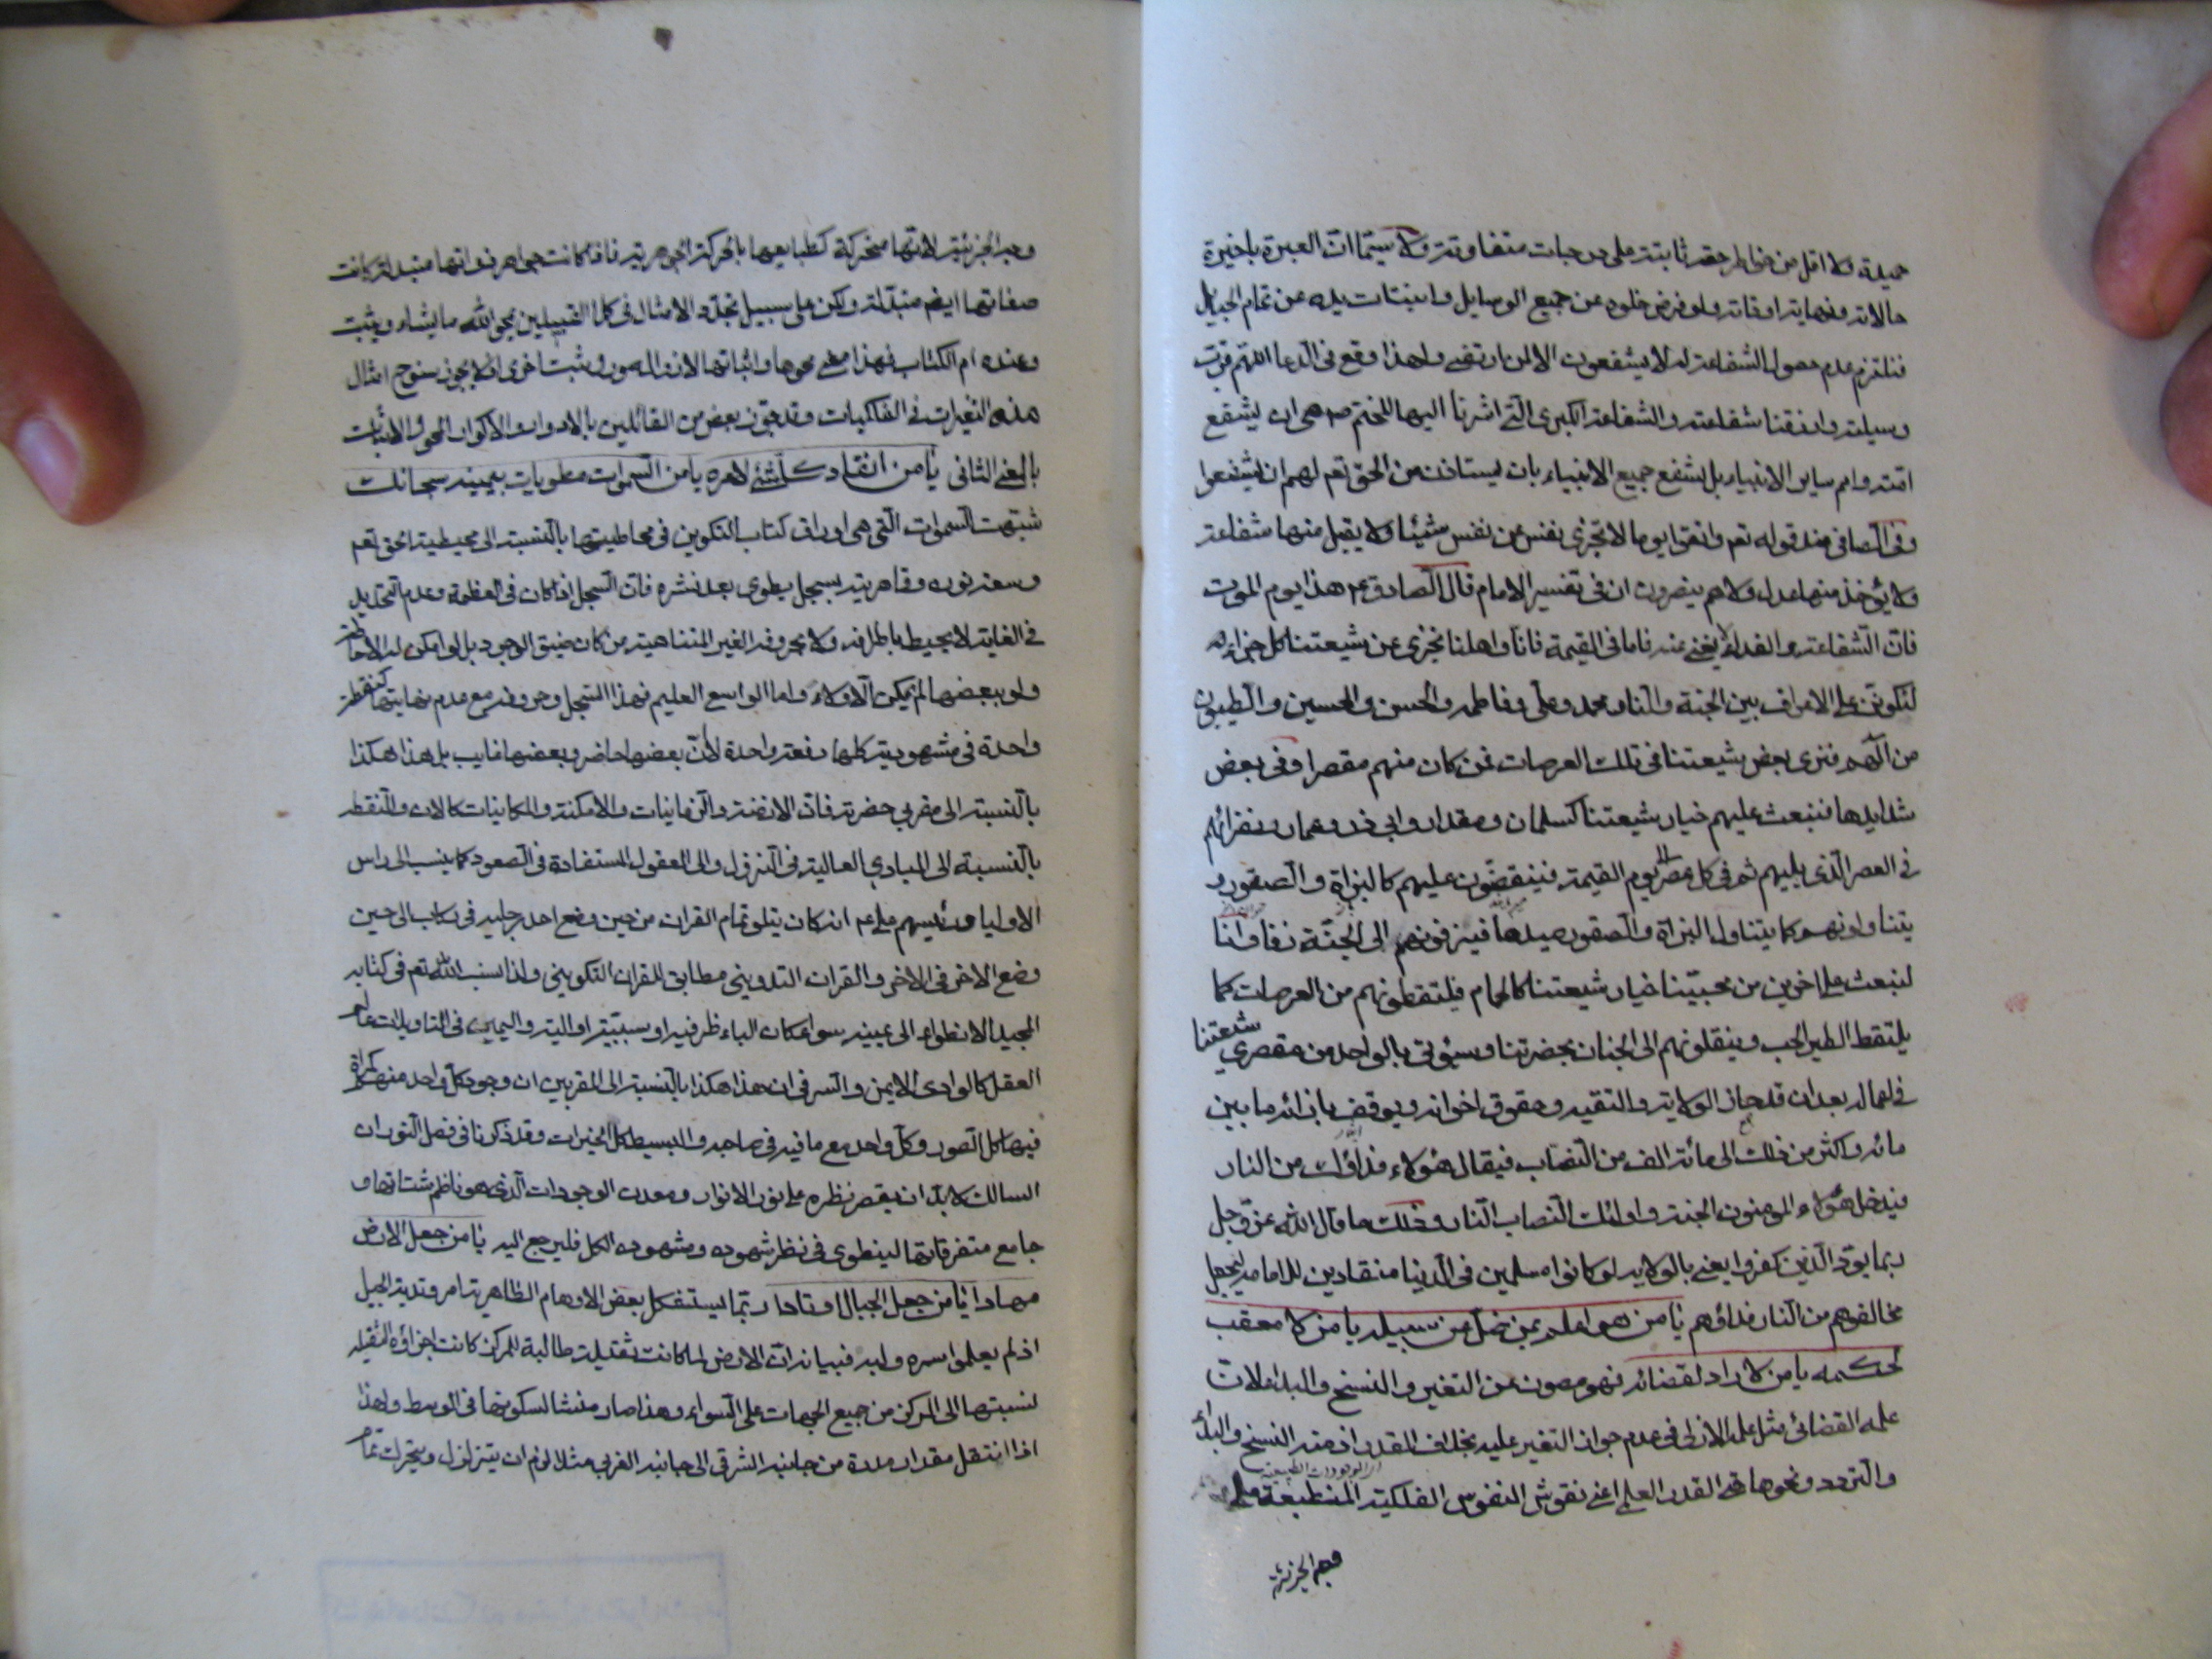 جميلة ولا اقل من خواطر حقة ثابتة على درجات متفاوتة ولا سيما ان العبرة باخيرة
حالاته ونهاية اوقاته ولو فرض خلوه عن جميع الوسايل وانبتات يده عن تمام الحبايل
فنلتزم عدم حصول الشفاعة له لا يشفعون الا لمن ارتضى ولهذا وقع فى الدعا اللهم قرب
وسيلته وارزقنا شفاعته والشفاعة الكبرى التى اشرنا اليها للختم ص هى ان ليشفع
امته وامم ساير الانبياء بل ليشفع جميع الانبياء بان يستاذن من الحق تعم لهم ان يشفعوا
وفى الصافى عند قوله تعم واتقوا يوما لا تجزى نفس عن نفس شيئا ولا يقبل منها شفاعة
ولا يؤخذ منها عدل ولا هم ينصرون ان فى تفسير الامام قال الصادق ع هذا يوم الموت
فان الشفاعة والفداء لا يغنى عنه فاما فى القيمة فانا واهلنا نجزى عن شيعتنا كل جزاء
لنكونن على الاعراف بين الجنة والنار محمد وعلى وفاطمة والحسن والحسين والطيبون
من آلهم فنرى بعض شيعتنا فى تلك العرصات فمن كان منهم مقصرا وفى بعض
شدايدها فنبعث عليهم خيار شيعتنا كسلمان ومقداد وابى ذر وعمار ونظرائهم
فى العصر الذى يليهم ثم فى كل عصر الى يوم القيمة فينقضون عليهم كالبزاة والصقور و
يتناولونهم كما يتناول البزاة والصقور صيدها فيزفونهم الى الجنة زفا وانا
لنبعث على اخرين من محبينا خيار شيعتنا كالحمام فيلتقطونهم من العرصات كما
يلتقط الطير الحب وينقلونهم الى الجنان بحضرتنا وسيؤتى بالواحد من مقصرى شيعتنا
فى اعماله بعد ان قد حاز الولاية والتقية وحقوق اخوانه ويوقف بازائه ما بين
مائة واكثر من ذلك الى مائة الف من النصاب فيقال هؤلاء فداؤك من النار
فيدخل هؤلاء المومنون الجنة واولئك النصاب النار وذلك ما قال الله عز وجل
ربما يود الذين كفروا يعنى بالولاية لو كانوا مسلمين فى الدنيا منقادين للامامة ليجعل
مخالفوهم من النار فداؤهم يا من هو اعلم بمن ضل عن سبيله يا من لا معقب
لحكمه يا من لا راد لقضائه فهو مصون عن التغير والنسخ والبدا لان
علمه القضائى مثل علمه الازلى فى عدم جواز التغير عليه بخلاف القدر اذ منه النسخ والبداء
والتردد ونحوها فى القدر العلمى اعنى نقوش النفوس الفلكية المنطبعة على
وجه الجزئية
وجه الجزئية لانها متحركة كطبايعها بالحركة الجوهرية فاذا كانت جواهر ذواتها متبدلة كانت
صفاتها ايضم متبدلة ولكن على سبيل تجدد الامثال فى كلا القبيلين يمحو الله ما يشاء ويثبت
وعنده ام الكتاب فهذا معنى محوها واثباتها لان والصور وثبت اخرى اذ لا يجوز سنوح امثال
هذه التغيرات فى الفلكيات وقد جوز بعض من القائلين بالادوار والاكوار المحو والاثبات
بالمعنى الثانى يا من انقاد كل شئ لامره يا من السموات مطويات بيمينه سبحانك
شبهت السموات التى هى اوراق كتاب التكوين فى محاطيتها بالنسبة الى محيطية الحق تعم
وسعة نوره وقاهريته بسجل يطوى بعد نشره فان السجل اذا كان فى العظمة وعدم التحديد
فى الغاية لا يحيط باطرافه ولا بحروفه الغير المتناهية من كان ضيق الوجود بل لو امكن له الاحاطة
ولو ببعضها لم يمكن الا ولاء واما الواسع العليم فهذا السجل وحروفه مع عدم نهايتها كنقطة
واحدة فى مشهوديته كلها دفعة واحدة لا ان بعضها حاضر وبعضها غايب بل هذا هكذا
بالنسبة الى مقربى حضرته فان الازمنة والزمانيات والامكنة والمكانيات كالان والنقطة
بالنسبة الى المبادى العالية فى النزول والى العقول المستفادة فى الصعود كما ينسب الى راس
الاوليا ورئيسهم على ع انه كان يتلو تمام القران من حين وضع احد رجليه فى ركاب الى حين
وضع الاخر فى الاخر والقران التدوينى مطابق للقران التكوينى ولذا نسب الله تعم فى كتابه
المجيد الانطواء الى يمينه سواء كان الباء ظرفية او سببية او الية واليمين فى التاويلات عالم
العقل كالوادى الايمن والسر فى ان هذا هكذا بالنسبة الى المقربين ان وجود كل واحد منهم كمراة
فيها كل الصور وكل واحد مع ما فيه فى صاحبه والبسيط كل الخيرات وقد ذكرنا فى فصل النور ان
السالك لا بد ان يقصر نظره على نور الانوار ومعدن الوجودات الذى هو ناظم شتاتها و
جامع متفرقاتها لينطوى فى نظر شهوده ومشهوده الكل فليرجع اليه يا من جعل الارض
مهادا يا من جعل الجبال اوتادا ربما يستشكل بعض الاوهام الظاهرية امر وتدية الجبل
اذ لم يعلموا سره ولبه فبيانه ان الارض لما كانت ثقيلة طالبة للمركز كانت اجزاؤه الثقيلة
لنسبتها الى المركز من جميع الجهات على السواء وهذا صار منشا لسكونها فى الوسط ولهذا
اذا انتقل مقدار مدرة من جانبه الشرقى الى جانبه الغربى مثلا لزم ان يتزلزل ويتحرك تمام